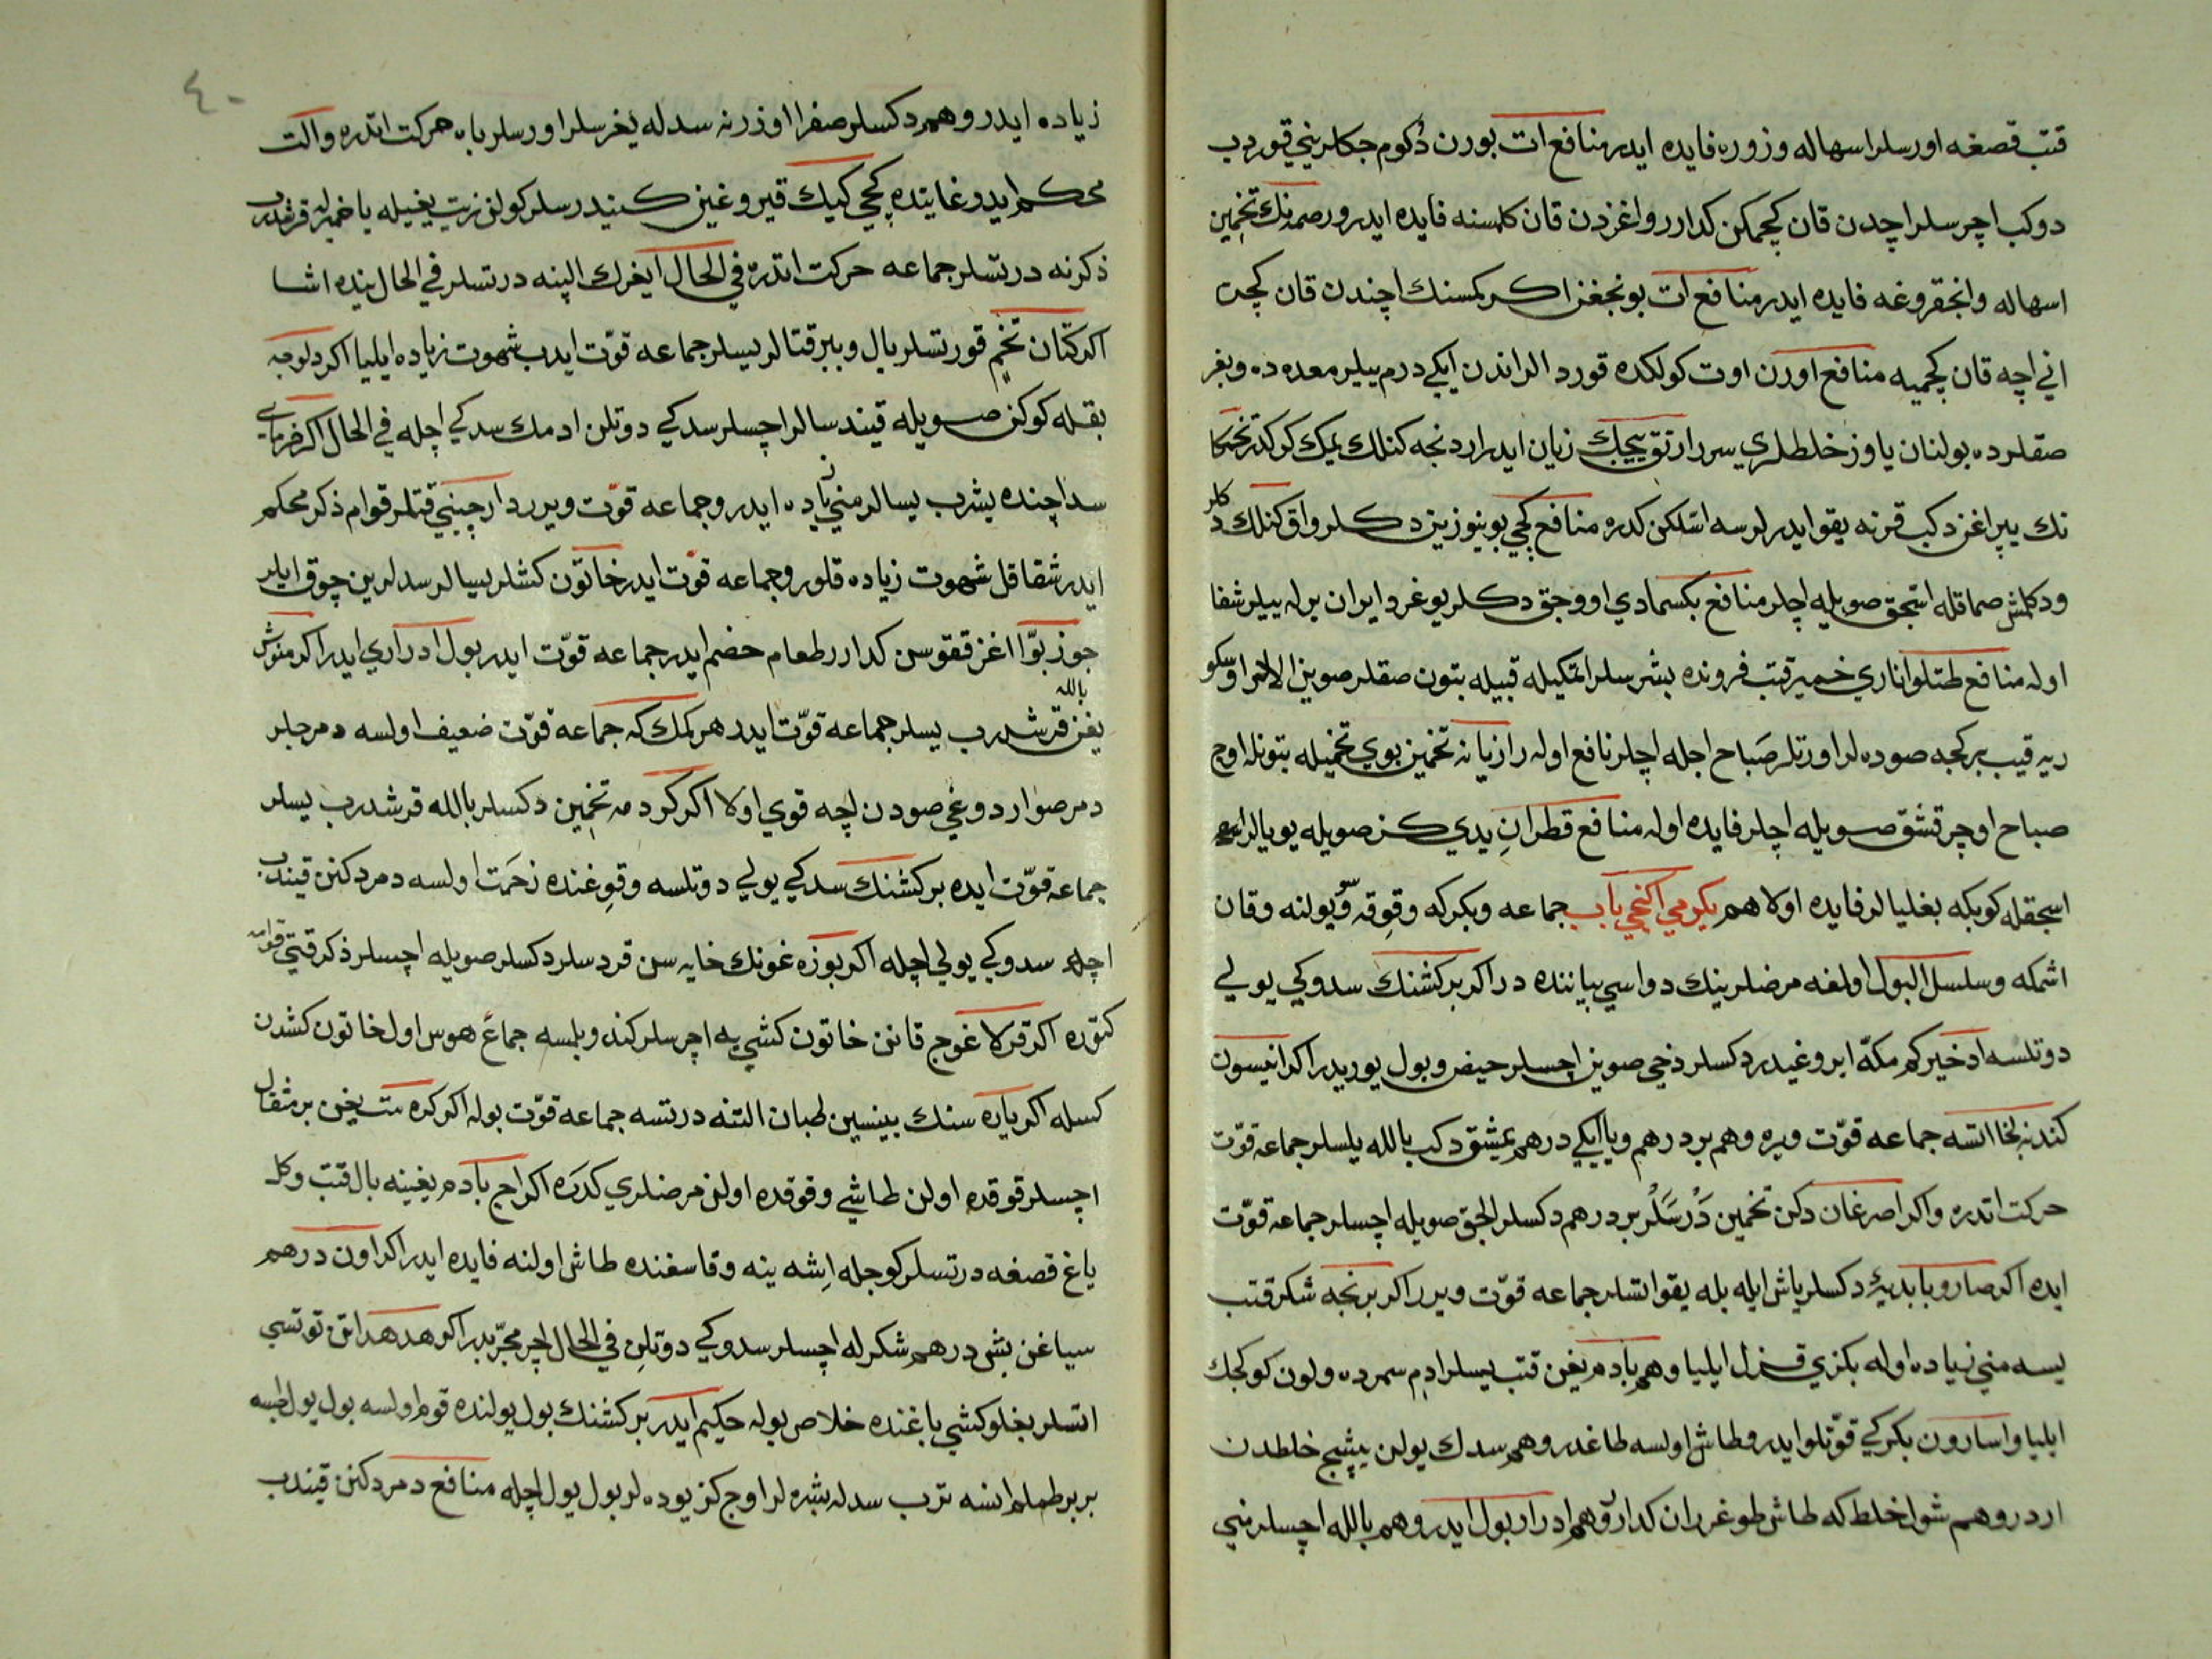 قتب قصغه اورسلر اسهاله وزوره فايده ايدر منافع ات بورن دكوم جكلريني قوردب
دوكب اچرسلر اچدن قان كچمكن كدارر واغزدن قان كلمسنه فايده ايدر ورصمنك تخمين
اسهاله وانجقروغه فايده ايدر منافع ات بونجغز اكر كمسنك اچندن قان كچر
اني اچه قان كچميه منافع اورن اوت كولكده قورد الر اندن ايكي درم ييلر معده ده وبغر
صقلرده بولنان ياوز خلطلري سرر ارتق ييجك زيان ايدر اردنجه كنلك يمك كركدر
نك يپراغن دكب قرنه يقو ايدرلرسه اسلكن كدره منافع كچي بوينوزين دكلر واق كنلك
ودكلمش صماقله اسجق صويله اچلر منافع بكسمادي اووجق دكلر يوغرد ايران برله ييلر شفا
اوله منافع طتلو اناري خميره قتب فرونده بشرسلر اتمكيله قبيله بتون صقلر صوين الالر
ريه قيب بر كجه صوده لر اورتلر صباح اجله اچلر نافع اوله رازيانه تخمين بوي تخميله بتونله اوج
صباح اوچر قشق صويله اچلر فايده اوله منافع قطران يدي كز صويله يويالر
اسجقله كوبكه بغليالر فايده اولا هم يكرمي اكنجي باب جماعه وبكركه وقوقه ويولنه وقان
اشمكه وسلسل البول اولغه مرضلرينك دواسي بياننده در اكر بر كشنك سدوكي يولي
دوتلسه ادخير كم مكه ايروغيدر دكسلر دخي صوين اچسلر حيض وبول يوريدر اكر انيسون
كندنه اتسه جماعه قوت ويره وهم بر درهم ويا ايكي درهم يمشق دكب بالله يلسلر جماعه قوت
حركت اتدره واكر اصرغان دكن تخمين درسلر بر درهم دكسلر الجق صويله اچسلر جماعه قوت
ايده اكر صارو بابديه دكسلر ياش ايله بله يقو اتسلر جماعه قوت ويرر اكر برنجه شكر قتب
يسه مني زياده اوله بكزي قزل ايليا وهم بادم يغن قتب يسلر ادم سمرده ولون كوكجك
ايليا واسارون بكركي قوتلو ايدر وطاش اولسه طاغدر وهم سدك يولن پيشيج خلطدن
اردر وهم شول خلط كه طاش طوغرر ان كدارر وهم ادرار بول ايدر وهم بالله اچسلر مني
٤٠
زياده ايدر وهم دكسلر صفرا اوزرنه سدله يغرسلر اورسلر باه حركت اتدره والت
محكم ايدر وغايتده كچي كيك قيروغين كيندرسلر كولن زيت يغيله ياخميرله قرشدرب
ذكرنه درتسلر جماعه حركت اتدره في الحال ايغرك الينه درتسلر في الحال ينده اشا
اكر كتان تخم قورتسلر بال وببر قتالر يسلر جماعه قوت ايدب شهوت زياده ايليا اكر دلوجه
بقله كوكن صويله قيندسالر اچسلر سدكي دوتلن ادمك سدكي اچله في الحال اكر
سد اچنده بشرب يسالر مني زياده ايدر وجماعه قوت ويرر دارچيني قتلر قوام ذكر محكم
ايدر شقاقل شهوت زياده قلور وجماعه قوت ايدر خاتون كشلر يسالر سدلرين چوق ايلر
جوز بوا اغز قفوسن كدارر طعام حضم ايدر جماعه قوت ايدر بول ادراري ايدر اكر
يغن بالله قرشدرب يسلر جماعه قوت ايدر هر كمك كه جماعه قوت ضعيف اولسه دمرجلر
دمر صواردوغي صودن اچه قوي اولا اكر كردمه تخمين دكسلر بالله قرشدرب يسلر
جماعه قوت ايده بر كشنك سدكي يولي دوتلسه وقوغنده زحمت اولسه دمر دكنن قيندب
اچلر سدوكي يولي اچله اكر بوزه غونك خايه سن قردسلر دكسلر صويله اچسلر ذكر قتي
كتوره اكر قرلاغوج قانن خاتون كشي يه اچرسلر كندو بلمسه جماع هوس اول خاتون كشدن
كسله اكر ياره سنك بينسين طبان التنه درتسه جماعه قوت بوله اكر كره ست يغن بر مثقال
اچسلر قوقده اولن طاشي وقوقده اولن مرضلري كدره اكر اج بادم يغينه بال قتب وكل
ياغ قصغه درتسلر كوجله ايشه ينه وقاسغنده طاش اولنه فايده ايدر اكر اون درهم
سياغن بش درهم شكرله اچسلر سدوكي دوتلن في الحال اچر مجربدر اكر هدهد اتن توتسي
اتسلر بغلو كشي باغنده خلاص بوله حكيم ايدر بر كشنك بول يولنده قوم اولسه بول يول
بر بر طملر انسه ترب سدله بشره لر اوج كز يوده لر بول يول اچله منافع دمر دكنن قيندب